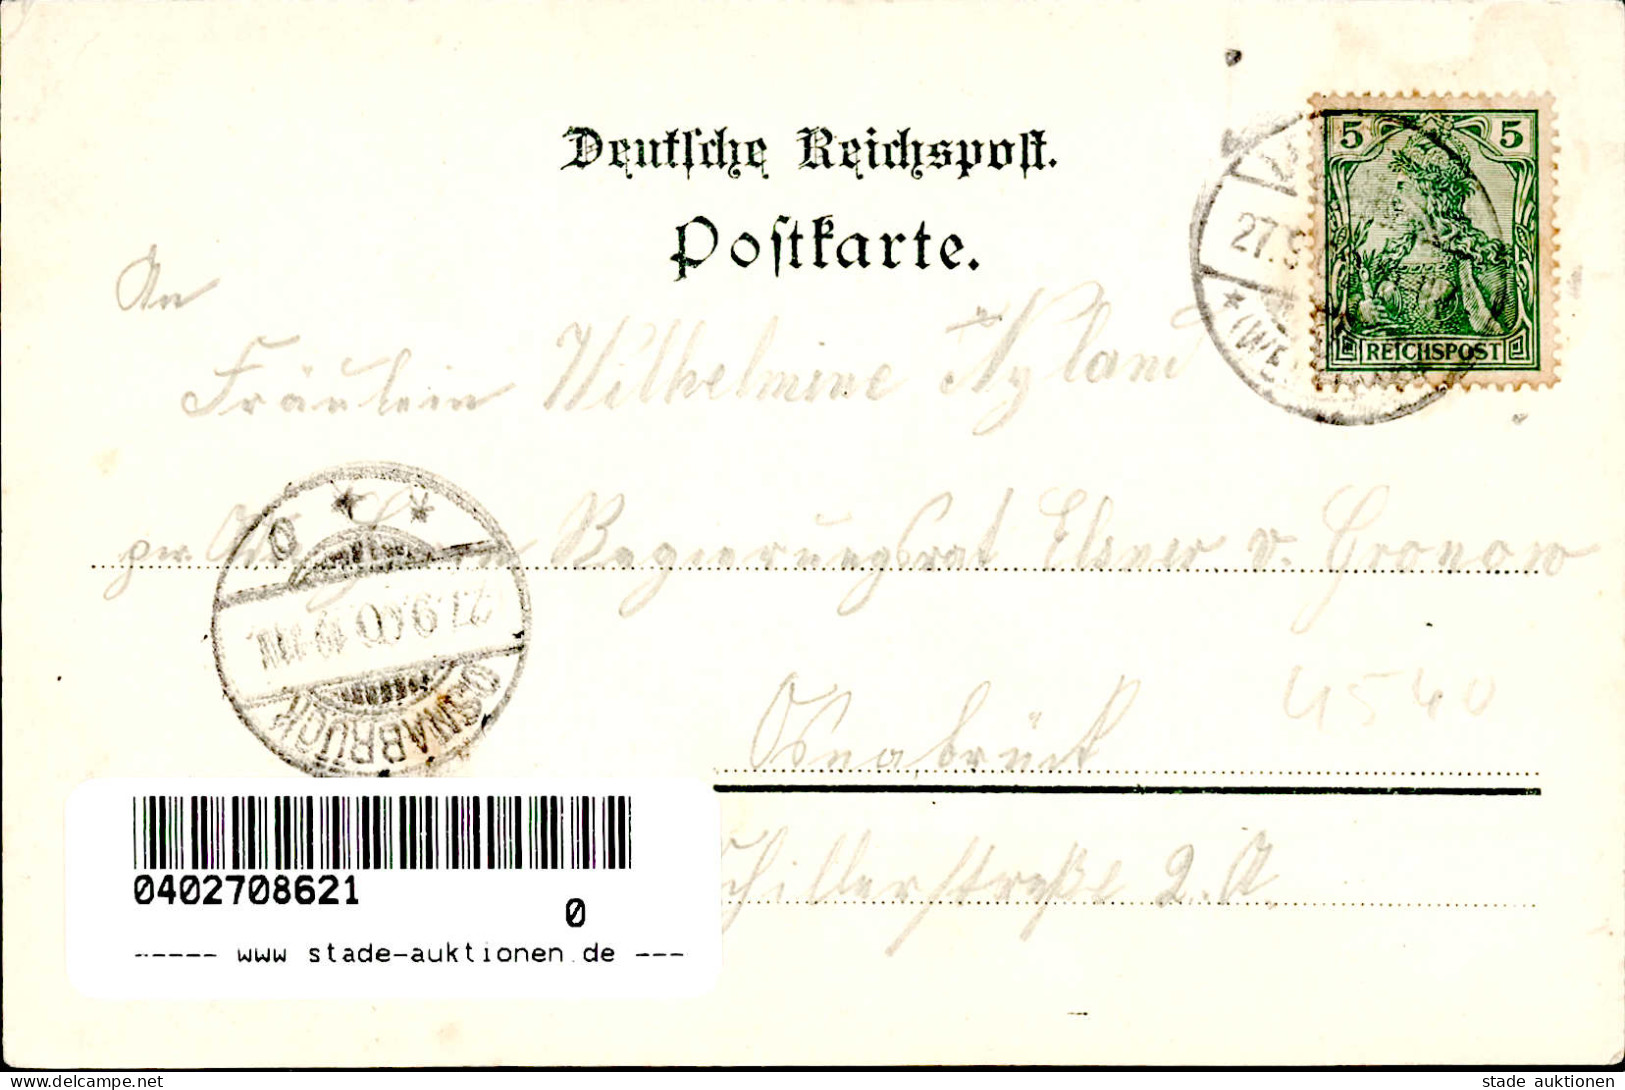 Deutsche Reichspost.
Postkarte.
5 5
REICHSPOST
27.9
* (WE
An
Fräulein Wilhelmine Nyland
per Regierungsrat Elsner v. Gronow
O * *
27.9.00. 10-11N.
OSNABRÜCK
Osnabrück
4540
Schillerstraße 2.A.
0402708621
0
----- www stade-auktionen.de ---
www.delcampe.net
stade auktionen